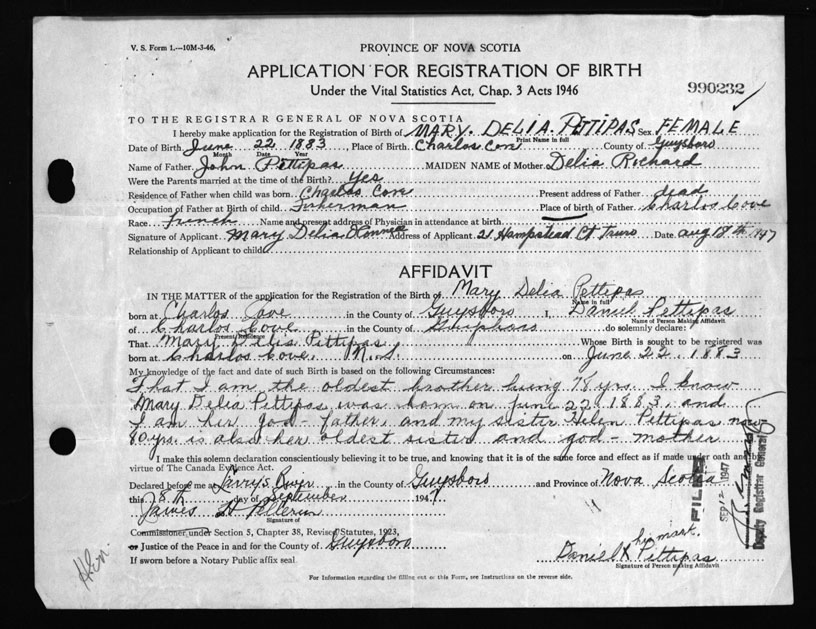 V. S. Form 1.—10M-3-46.
PROVINCE OF NOVA SCOTIA
APPLICATION FOR REGISTRATION OF BIRTH
Under the Vital Statistics Act, Chap. 3 Acts 1946
990232
TO THE REGISTRAR GENERAL OF NOVA SCOTIA
I hereby make application for the Registration of Birth of MARY. DELIA. PETTIPAS Sex FEMALE
Print Name in full
Date of Birth June 22 1883, Place of Birth Charlos Cove County of Guysboro
Month Date Year
Name of Father John Pettipas MAIDEN NAME of Mother Delia Richard
Were the Parents married at the time of the Birth? Yes
Residence of Father when child was born Charlos Cove Present address of Father dead
Occupation of Father at Birth of child Fisherman Place of birth of Father Charlos Cove
Race French Name and present address of Physician in attendance at birth
Signature of Applicant Mary Delia O'Connell Address of Applicant 21 Hampstead Ct Truro Date Aug 18th 1947
Relationship of Applicant to child
AFFIDAVIT
IN THE MATTER of the application for the Registration of the Birth of Mary Delia Pettipas
Name in full
born at Charlos Cove in the County of Guysboro I, Daniel Pettipas
Name of Person Making Affidavit
of Charlos Cove in the County of Guysboro do solemnly declare:
Present Residence
That Mary Delia Pettipas Whose Birth is sought to be registered was
born at Charlos Cove, N.S. on June 22. 1883
My knowledge of the fact and date of such Birth is based on the following Circumstances:
That I am the oldest brother being 78 yrs. I know
Mary Delia Pettipas was born on June 22 1883, and
I am her god-father, and my sister Helen Pettipas now
80 yrs. is also her oldest sister and god-mother
I make this solemn declaration conscientiously believing it to be true, and knowing that it is of the same force and effect as if made under oath and by
virtue of The Canada Evidence Act.
Declared before me at Larry's River in the County of Guysboro and Province of Nova Scotia
this 8th day of September 1947
James H Pellerin
Signature of
Commissioner under Section 5, Chapter 38, Revised Statutes, 1923,
or Justice of the Peace in and for the County of Guysboro
If sworn before a Notary Public affix seal
his mark
Daniel X Pettipas
Signature of Person making Affidavit
For Information regarding the filling out of this Form, see Instructions on the reverse side.
FILED
SEP 12 1947
Deputy Registrar General